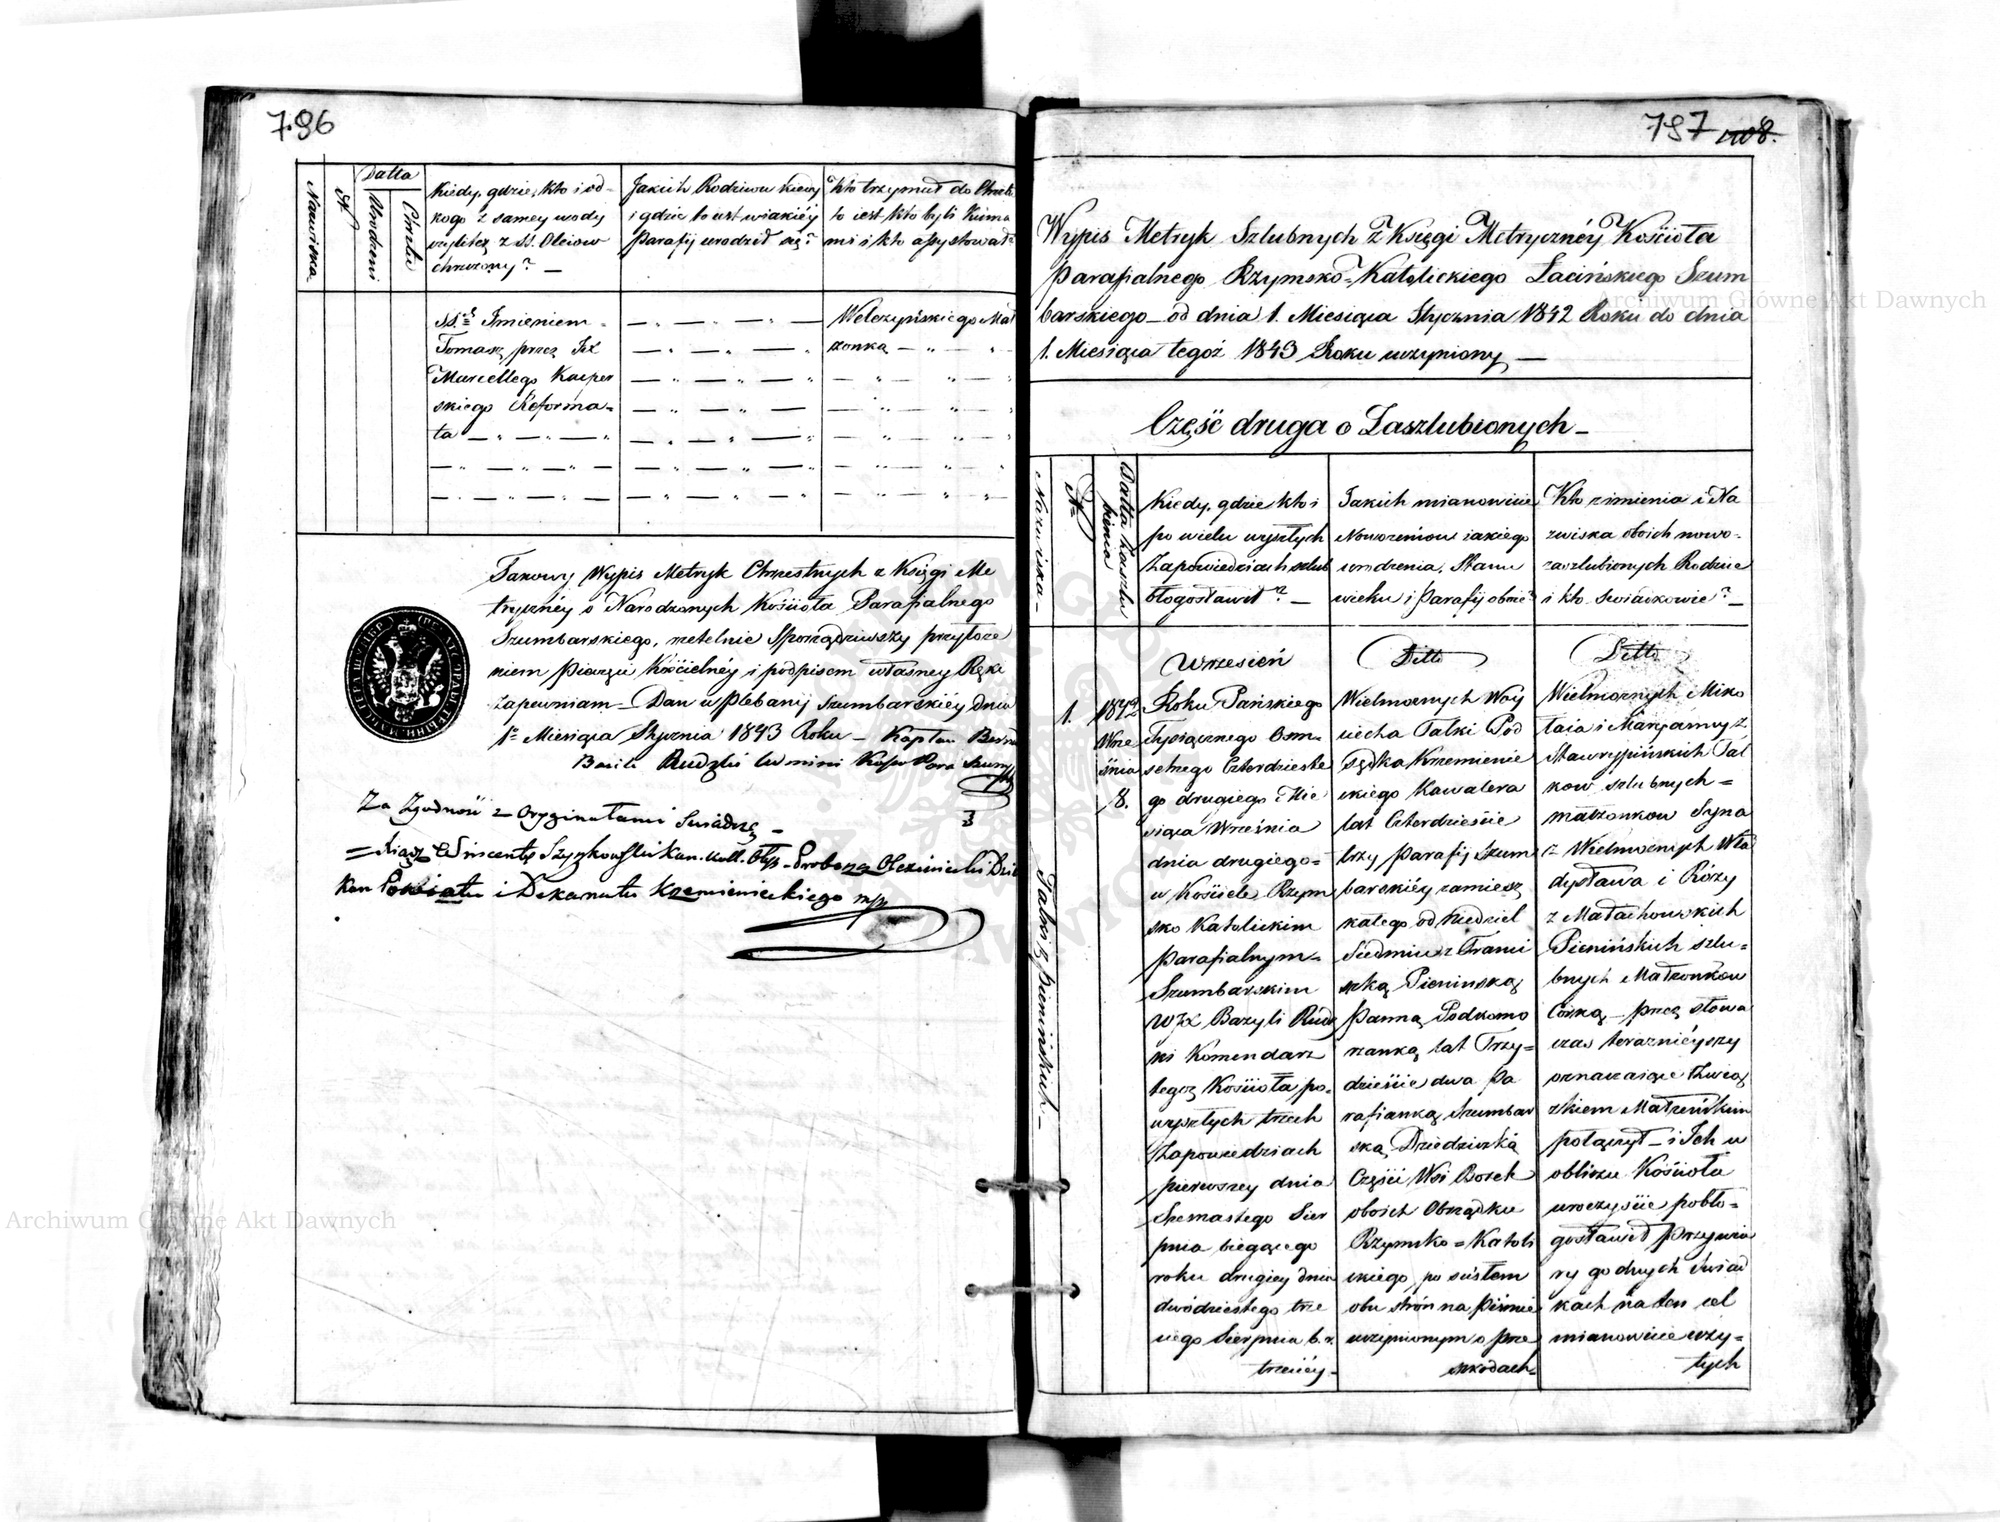 796
Nazwiska
№
Datta
Urodzeni
Chrztu
Kiedy, gdzie, kto i od-
kogo z samey wody
czyliteż z SS. Oleiow
chrzczony? —
Jakich Rodziców kiedy
i gdzie to iest w iakiéy
Parafij urodził się?
Kto trzymał do Chrztu
to iest kto byli Kuma
mi i kto assystował?
Imieniem
Tomasz przez JX
Marcellego Kasper
skiego Reforma=
ta — „ — „ — „
Welczyńskiego Mał
żonka — „ — „
Takowy Wypis Metryk Chrzestnych z Księgi Me
tryczney o Narodzonych Kościoła Parafialnego
Szumbarskiego, rzetelnie Sporządziwszy przyłoże
niem Pieczęci Kościelnéy i podpisem własney Ręki
zapewniam — Dan w Plebanij Szumbarskiéy dnia
1º Miesiąca Stycznia 1843 Roku — Kapłan
Rudzki
Za Zgodność z Oryginałami Swiadczę —
= Xiądz Wincenty Szynkowski Kan. Koll. Ołyc. Proboszcz Olexiniecki Dzie
kan Powiatu i Dekanatu Krzemienieckiego mp
797
Wypis Metryk Szlubnych z Księgi Metrycznéy Kościoła
Parafialnego Rzymsko=Katolickiego Łacińskiego Szum
barskiego — od dnia 1. Miesiąca Stycznia 1842 Roku do dnia
1. Miesiąca tegoż 1843 Roku uczyniony —
Część druga o Zaszlubionych —
Nazwiska —
№
Datta Zaszlu
bienia
Kiedy, gdzie kto i
po wielu wyszłych
Zapowiedziach szlub
błogosławił? —
Jakich mianowicie
Nowożeniow iakiego
urodzenia, Stanu
wieku i Parafij oboie?
Kto z imienia i Na
zwiska oboich nowo-
zaszlubionych Rodzice
i kto Swiadkowie? —
Talki z Pienińskich —
1.
1842
Wrze
śnia
8.
Wrzesień
Roku Pańskiego
Tysiącznego Osm-
setnego Czterdzieste
go drugiego Mie
siąca Września
dnia drugiego=
w Kościele Rzym
sko Katolickim
Parafialnym=
Szumbarskim
WJX Bazyli Rudz
ki Komendarz
tegoż Kościoła po-
wyszłych trzech
Zapowiedziach
pierwszey dnia
Szesnastego Sier
pnia bieżącego
roku drugiey dnia
dwódziestego trze
ciego Sierpnia b. r.
trzeciéy-
Ditto
Wielmożnych Woy
ciecha Talki Pod
sędka Krzemienie
ckiego Kawalera
lat Czterdzieście
trzy Parafij Szum
barskiéy zamiesz
kałego od Niedziel
Siedmiu z Franci
szką Pieninską
Panną Podkomo
rzanką lat Trzy=
dzieście dwa Pa
rafianką Szumbar
ską Dziedziczką
Części Wsi Borek
oboich Obrządku
Rzymsko=Katoli
ckiego, po scisłem
obu strón na Piśmie
uczynionym o prze
szkodach=
Ditto
Wielmożnych Miko
łaia i Maryanny z
Skawryńskich Tal
kow szlubnych=
małżonkow Syna
z Wielmożnych Wła
dysława i Róży
z Małachowskich
Pienińskich szlu=
bnych Małżonkow
Córką — przez słowa
czas teraznieyszy
oznaczaiące Zwią
zkiem Małżeńskim
połączył — i Ich w
obliczu Kościoła
uroczyście pobło=
gosławił przy wia
ry godnych Swiad
kach na ten cel
mianowicie uży=
tych
Archiwum Główne Akt Dawnych
Archiwum Główne Akt Dawnych